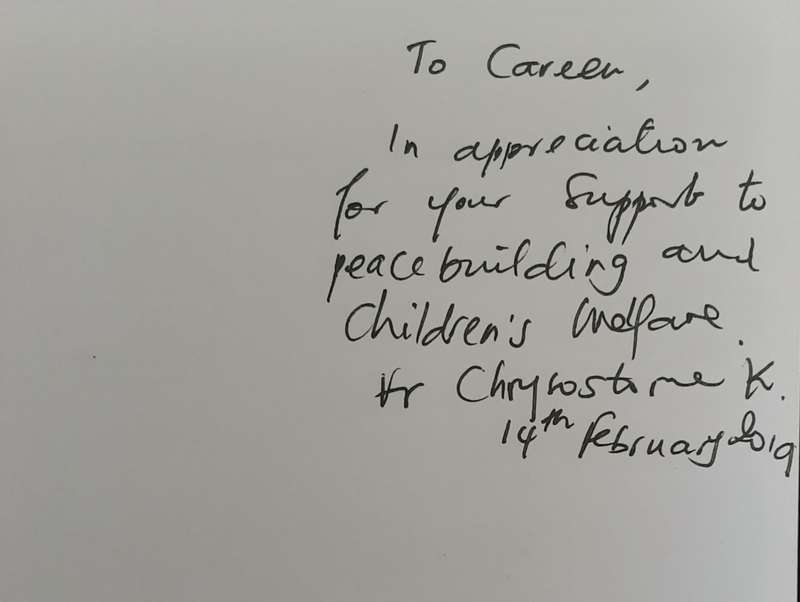 To Careen,
In appreciation
for your support to
peacebuilding and
Children's Welfare.
Fr Chrysostome K.
14th February 2019